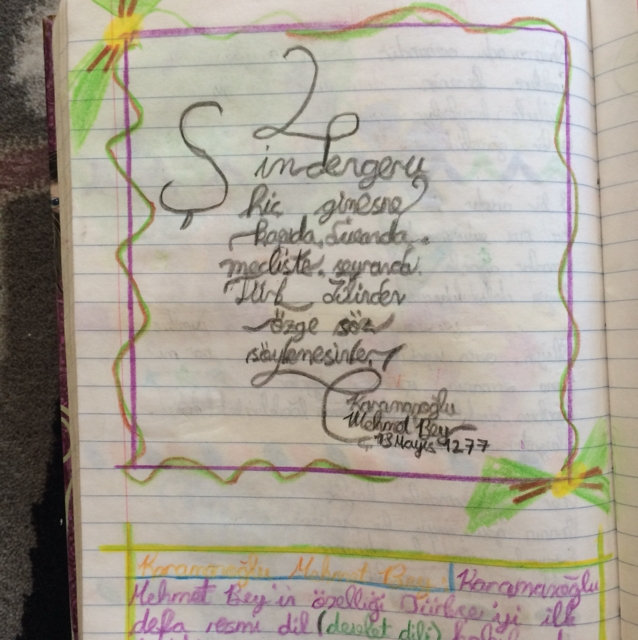 Şindengeru
hiç gimesne
kapıda, divanda,
mecliste, seyranda.
Türk dilinden
özge söz
söylemesinler
Karamanoğlu
Mehmet Bey
13 Mayıs 1277
Karamanoğlu Mehmet Bey: Karamanoğlu
Mehmet Bey'in özelliği Türkçe'yi ilk
defa resmi dil (devlet dili)